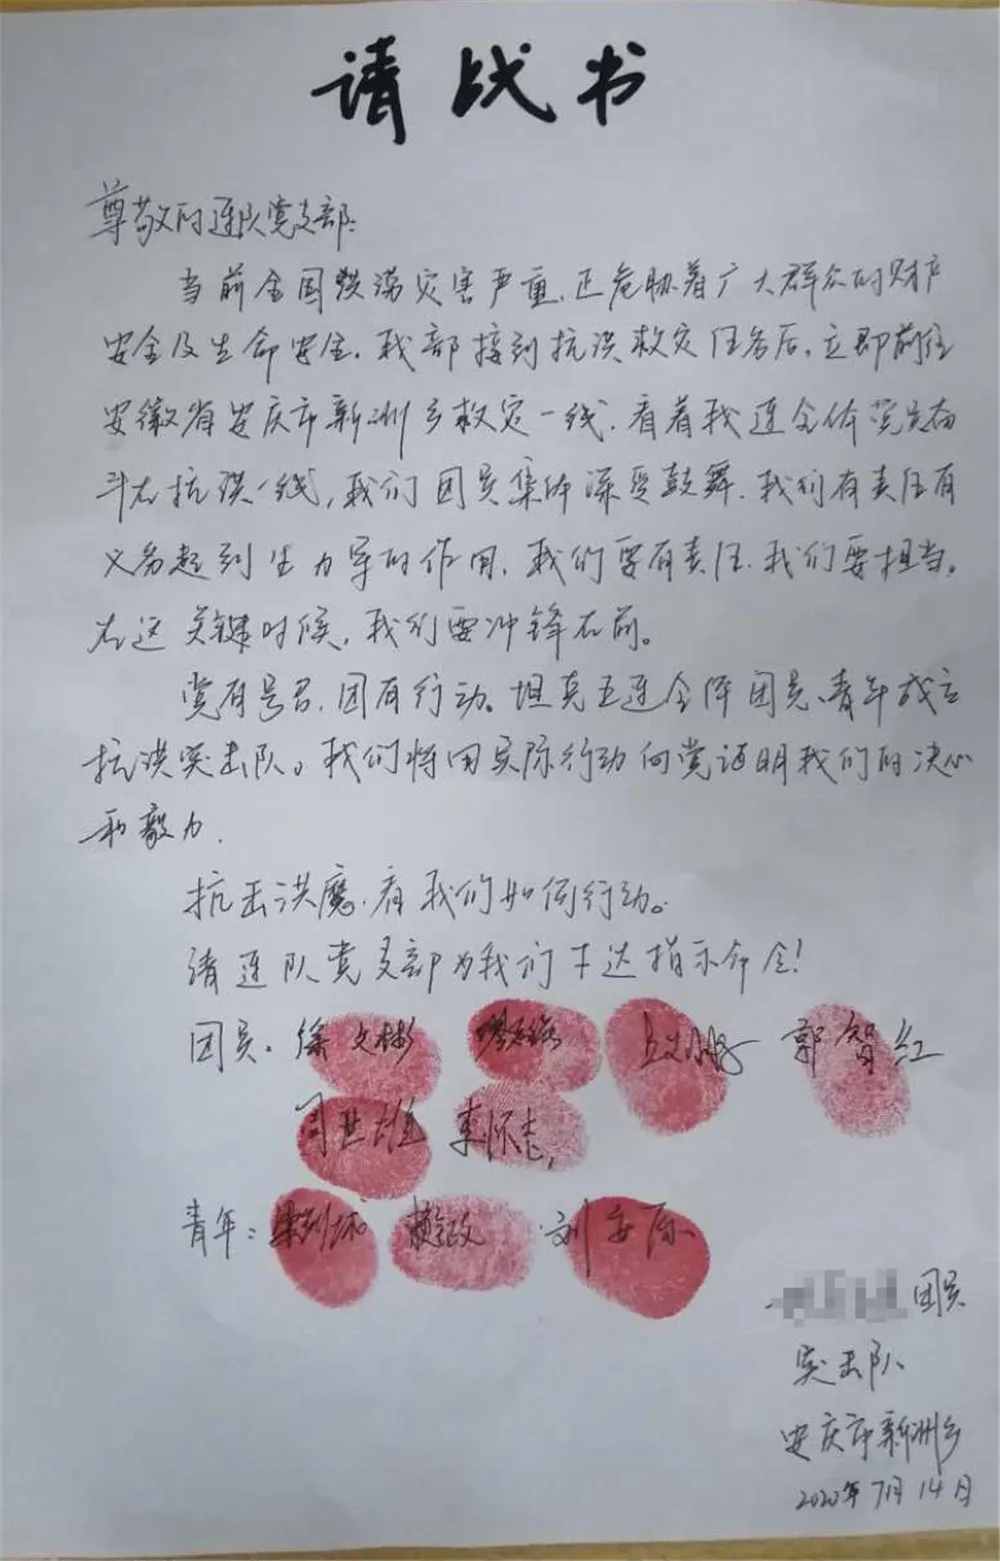 请战书
尊敬的连队党支部:
当前全国洪涝灾害严重,正危胁着广大群众的财产
安全及生命安全.我部接到抗洪救灾任务后,立即前往
安徽省安庆市新洲乡救灾一线.看着我连全体党员奋
斗在抗洪一线,我们团员集体深受鼓舞.我们有责任有
义务起到生力军的作用,我们要有责任.我们要担当。
在这关键时候,我们要冲锋在前。
党有号召,团有行动。坦克五连全体团员、青年成立
抗洪突击队。我们将用实际行动向党证明我们的决心
和毅力.
抗击洪魔.看我们如何行动。
请连队党支部为我们下达指示命令!
团员. 徐文彬 郭智红
司世雄 李怀志,
青年: 刘安原
团员
突击队
安庆市新洲乡
2020年7月14日